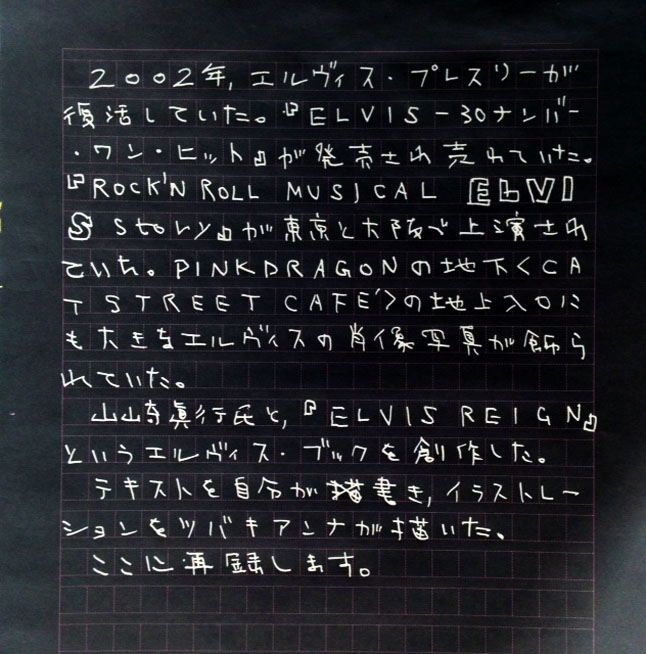 2002年,エルヴィス・プレスリーが
復活していた。『ELVIS-30ナンバー
・ワン・ヒット』が発売され売れていた。
『ROCK'N ROLL MUSICAL ELVI
S Story』が東京と大阪で上演され
ていた。PINKDRAGONの地下<CA
T STREET CAFE'>の地上入口に
も大きなエルヴィスの肖像写真が飾ら
れていた。
山山寺眞行氏と,『ELVIS REIGN』
というエルヴィス・ブックを創作した。
テキストを自分が書き,イラストレー
ションをツバキアンナが描いた。
ここに再録します。